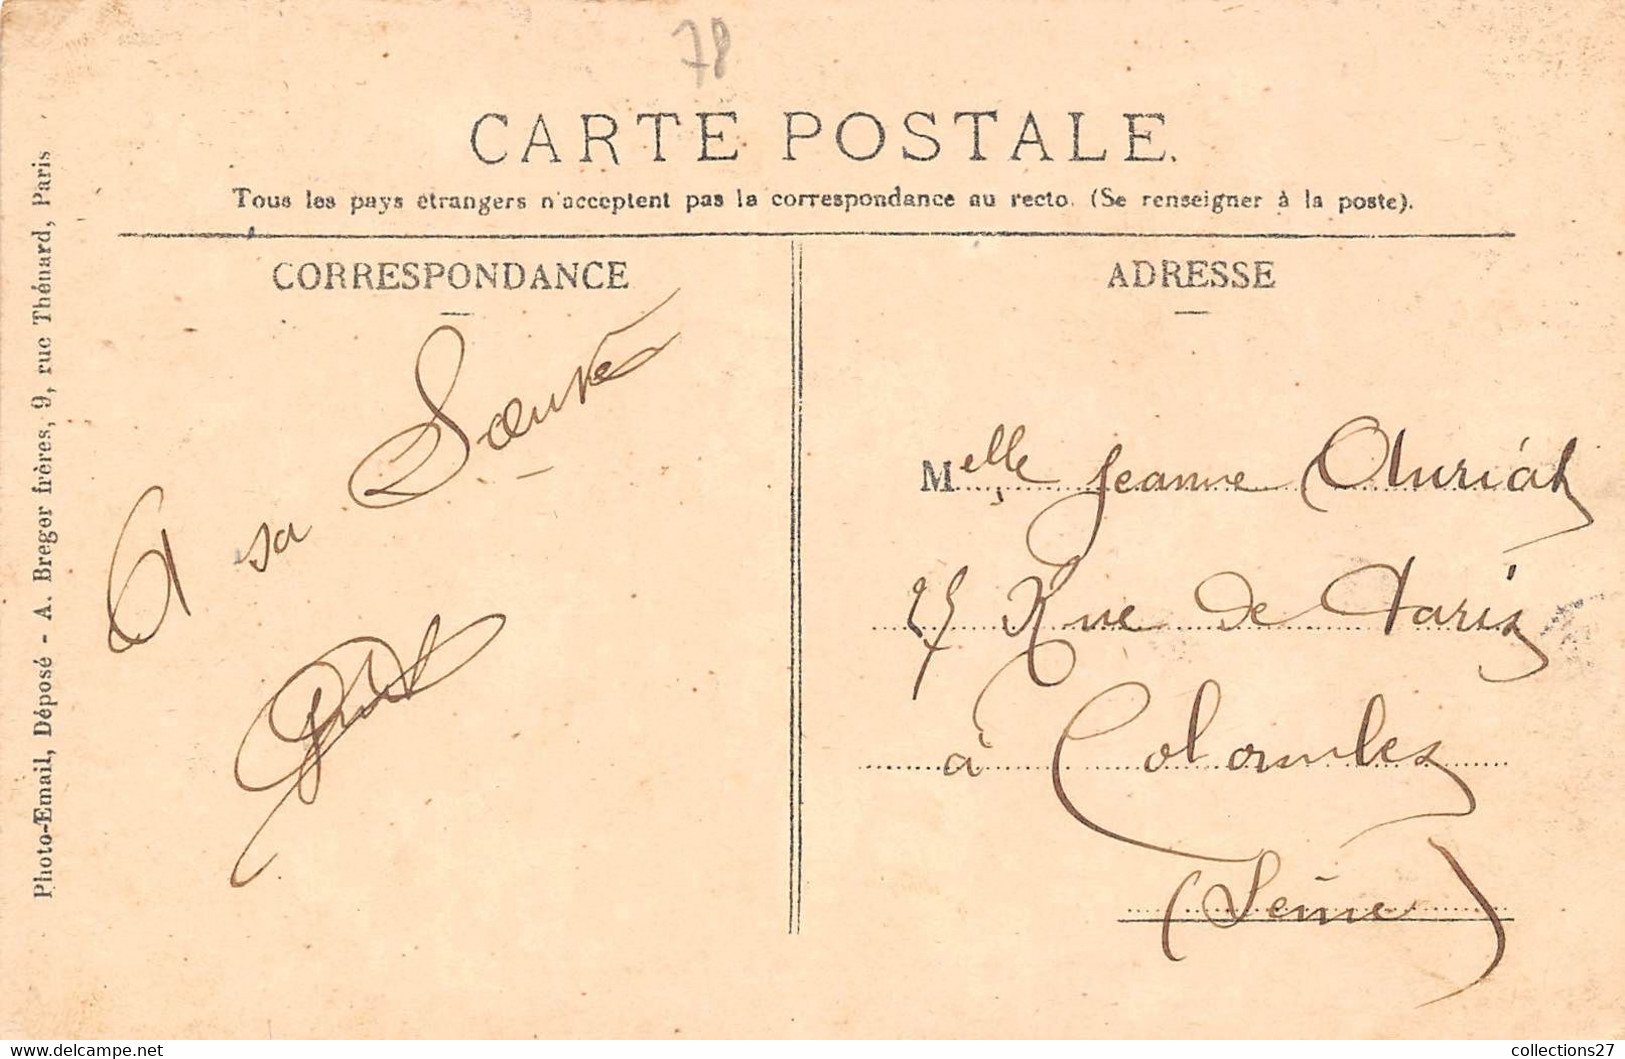 78
CARTE POSTALE.
Tous les pays étrangers n'acceptent pas la correspondance au recto. (Se renseigner à la poste).
CORRESPONDANCE
A sa
ADRESSE
Melle Jeanne
25 Rue de Paris
à Colombes
(Seine)
Photo-Email, Déposé - A. Breger frères, 9, rue Thénard, Paris
collections27